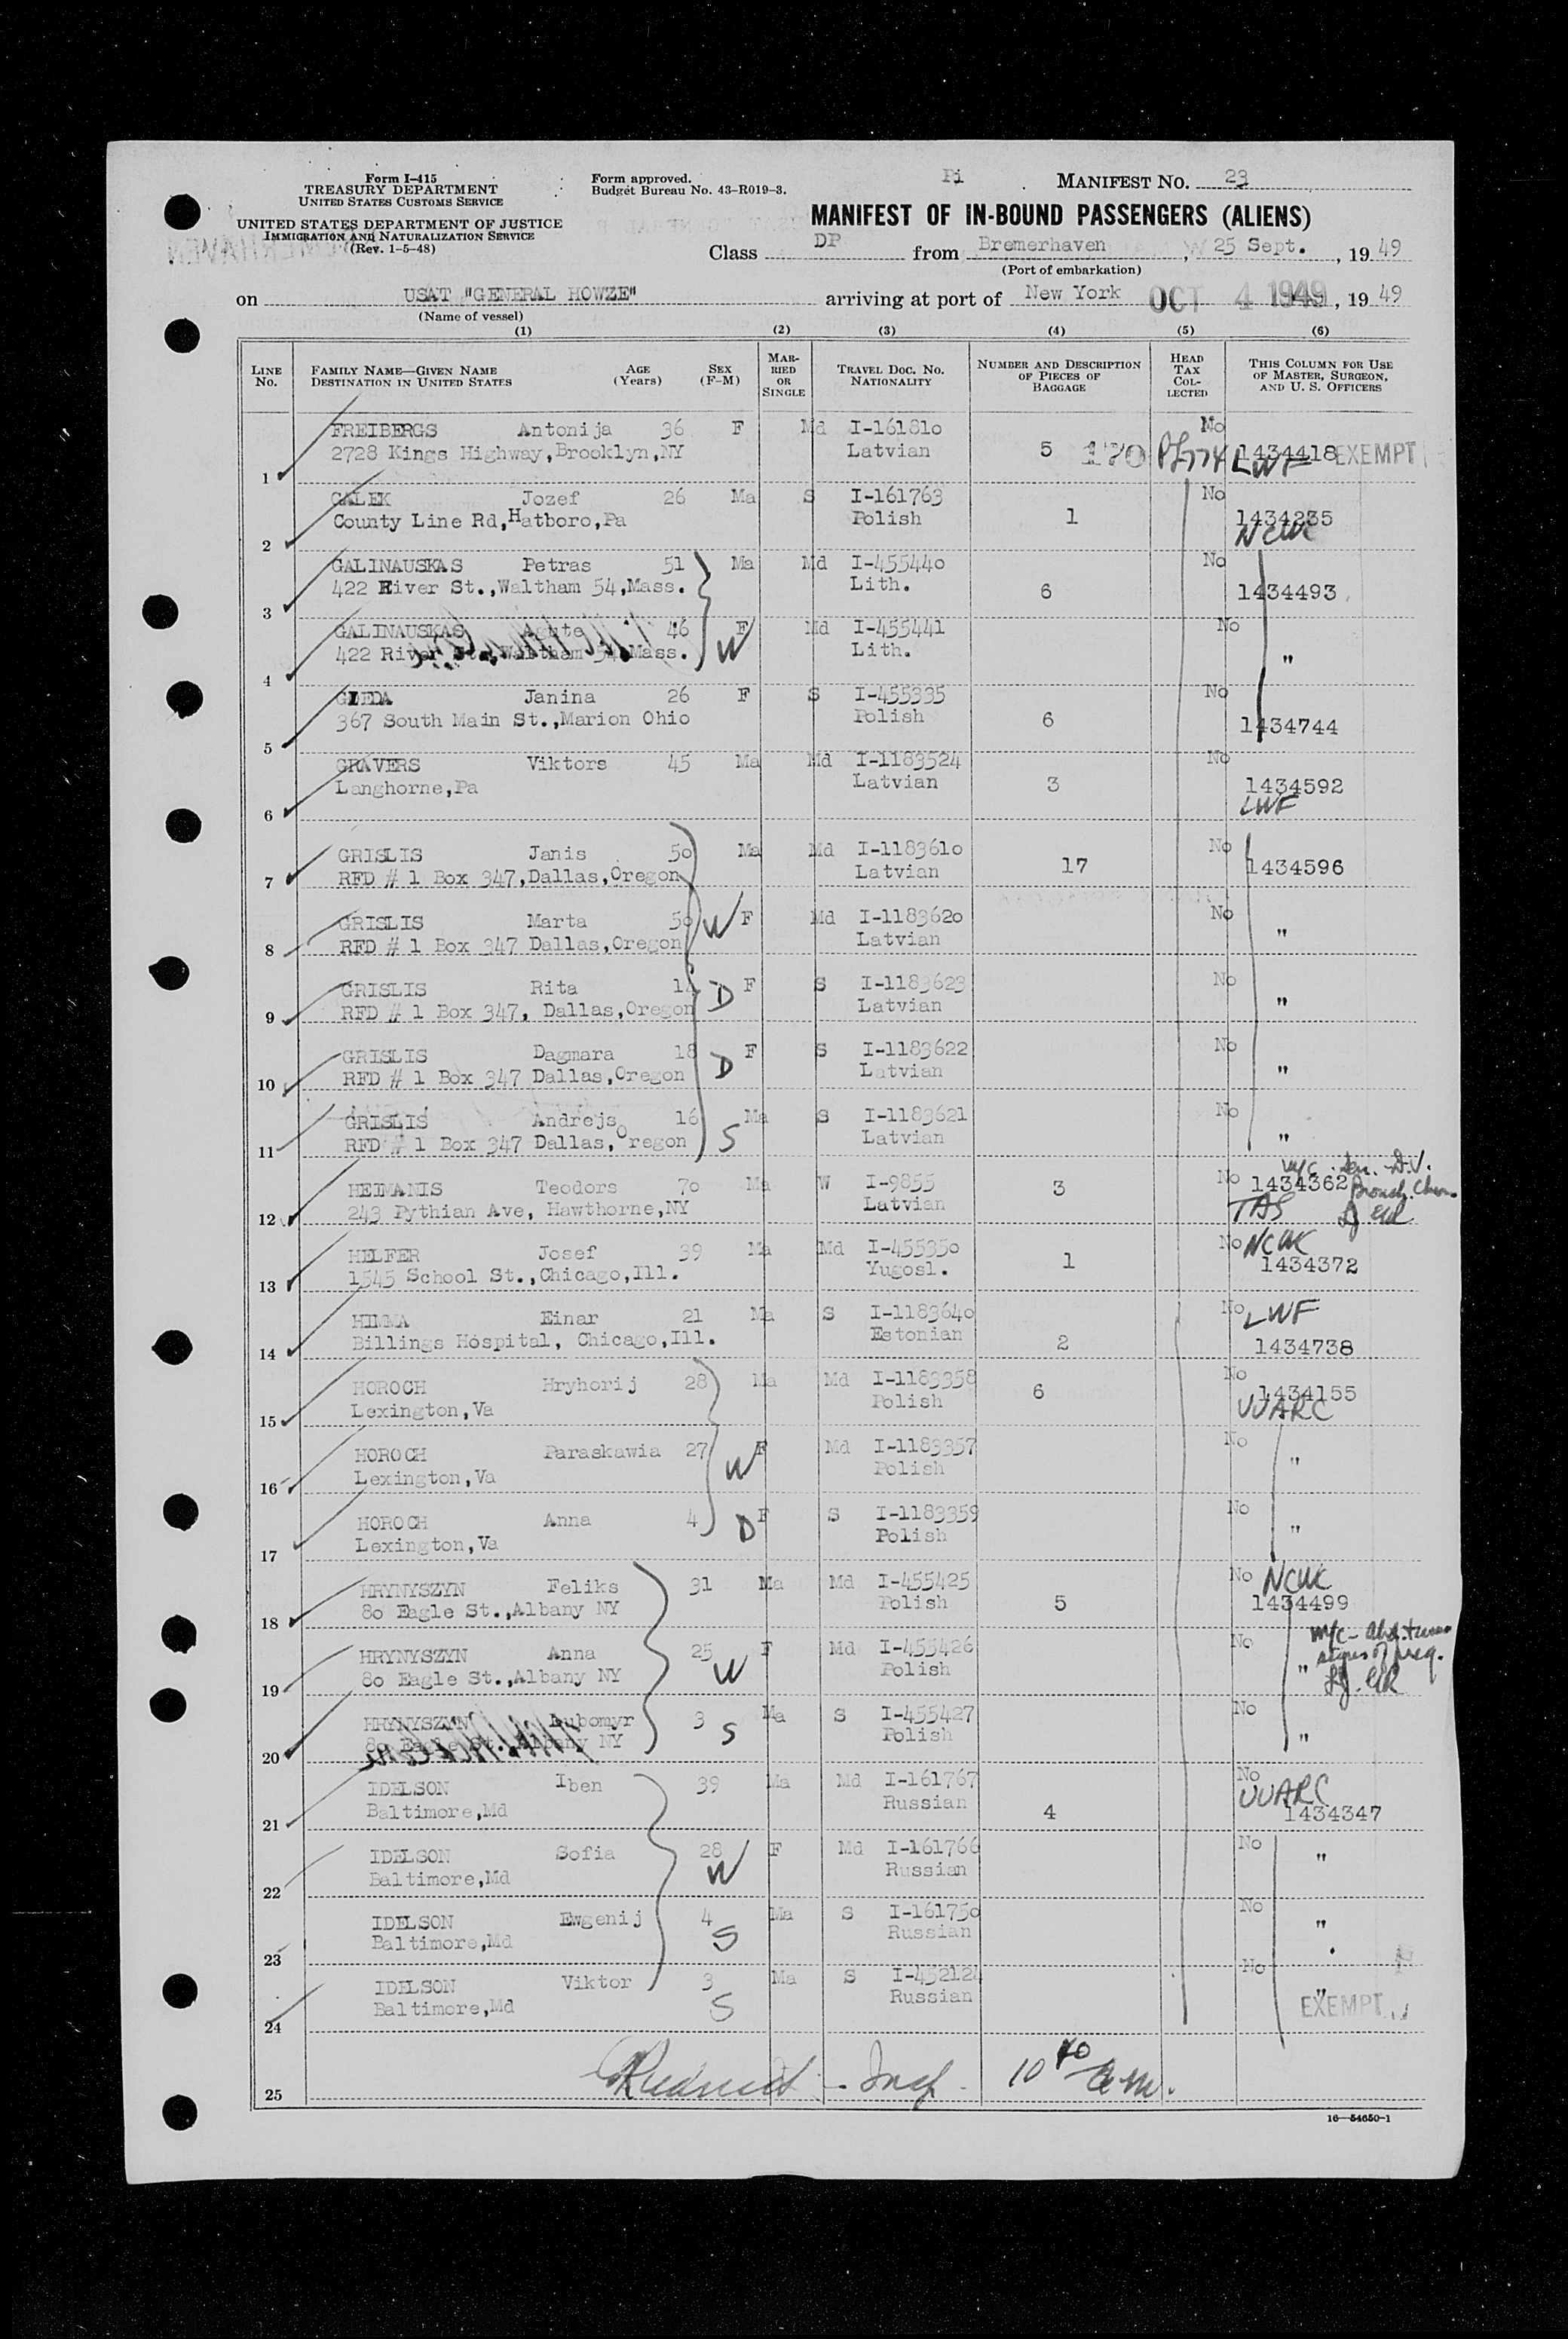 Form I-415
TREASURY DEPARTMENT
UNITED STATES CUSTOMS SERVICE
UNITED STATES DEPARTMENT OF JUSTICE
IMMIGRATION AND NATURALIZATION SERVICE
(Rev. 1-5-48)
Form approved.
Budget Bureau No. 43-R019-3.
Pi
MANIFEST NO. 23
MANIFEST OF IN-BOUND PASSENGERS (ALIENS)
Class DP from Bremerhaven, 25 Sept., 19 49
(Port of embarkation)
on USAT "GENERAL HOWZE" arriving at port of New York OCT 4 1949, 19 49
(Name of vessel)
(1) (2) (3) (4) (5) (6)
LINE No. FAMILY NAME—GIVEN NAME DESTINATION IN UNITED STATES AGE (Years) SEX (F-M) MARRIED OR SINGLE TRAVEL DOC. NO. NATIONALITY NUMBER AND DESCRIPTION OF PIECES OF BAGGAGE HEAD TAX COLLECTED THIS COLUMN FOR USE OF MASTER, SURGEON, AND U. S. OFFICERS
FREIBERGS Antonija 36 F Md I-161810 No
1 2728 Kings Highway,Brooklyn,NY Latvian 5 170 PL774 1434418 EXEMPT
LWF
GALEK Jozef 26 Ma S I-161763 No
2 County Line Rd,Hatboro,Pa Polish 1 1434235
NCWC
GALINAUSKAS Petras 51 Ma Md I-455440 No
3 422 River St.,Waltham 54,Mass. Lith. 6 1434493
GALINAUSKAS Agute 46 F Md I-455441 No
4 422 River St., Waltham 54,Mass. W Lith. "
Janina 26 F S I-455335 No
5 367 South Main St.,Marion Ohio Polish 6 1434744
GRAVERS Viktors 45 Ma Md I-1183524 No
6 Langhorne,Pa Latvian 3 1434592
LWF
GRISLIS Janis 50 Ma Md I-1183610 No
7 RFD # 1 Box 347,Dallas,Oregon Latvian 17 1434596
GRISLIS Marta 50 W F Md I-1183620 No
8 RFD # 1 Box 347 Dallas,Oregon Latvian "
GRISLIS Rita 14 D F S I-1183623 No
9 RFD # 1 Box 347, Dallas,Oregon Latvian "
GRISLIS Dagmara 18 D F S I-1183622 No
10 RFD # 1 Box 347 Dallas,Oregon Latvian "
GRISLIS Andrejs 16 Ma S I-1183621 No
11 RFD # 1 Box 347 Dallas,Oregon S Latvian "
HEIMANIS Teodors 70 Ma W I-9855 3 No 1434362
12 243 Pythian Ave, Hawthorne,NY Latvian
HELFER Josef 39 Ma Md I-455350 No NCWC
13 1545 School St.,Chicago,Ill. Yugosl. 1 1434372
HIMMA Einar 21 Ma S I-1183640 No LWF
14 Billings Hospital, Chicago,Ill. Estonian 2 1434738
HOROCH Hryhorij 28 Ma Md I-1183358 No
15 Lexington,Va Polish 6 1434155
UUARC
HOROCH Paraskawia 27 W F Md I-1183357 No
16 Lexington,Va Polish "
HOROCH Anna 4 D F S I-1183359 No
17 Lexington,Va Polish "
HRYNYSZYN Feliks 31 Ma Md I-455425 No NCWC
18 80 Eagle St.,Albany NY Polish 5 1434499
HRYNYSZYN Anna 25 F Md I-455426 No
19 80 Eagle St.,Albany NY W Polish "
HRYNYSZYN Lubomyr 3 Ma S I-455427 No
20 80 Eagle St.,Albany NY S Polish "
IDELSON Iben 39 Ma Md I-161767 No UUARC
21 Baltimore,Md Russian 4 1434347
IDELSON Sofia 28 F Md I-161766 No
22 Baltimore,Md W Russian "
IDELSON Ewgenij 4 Ma S I-161750 No
23 Baltimore,Md S Russian "
IDELSON Viktor 3 Ma S No
24 Baltimore,Md S Russian " EXEMPT
25 Insp. 10 40 a.m.
16—54650-1